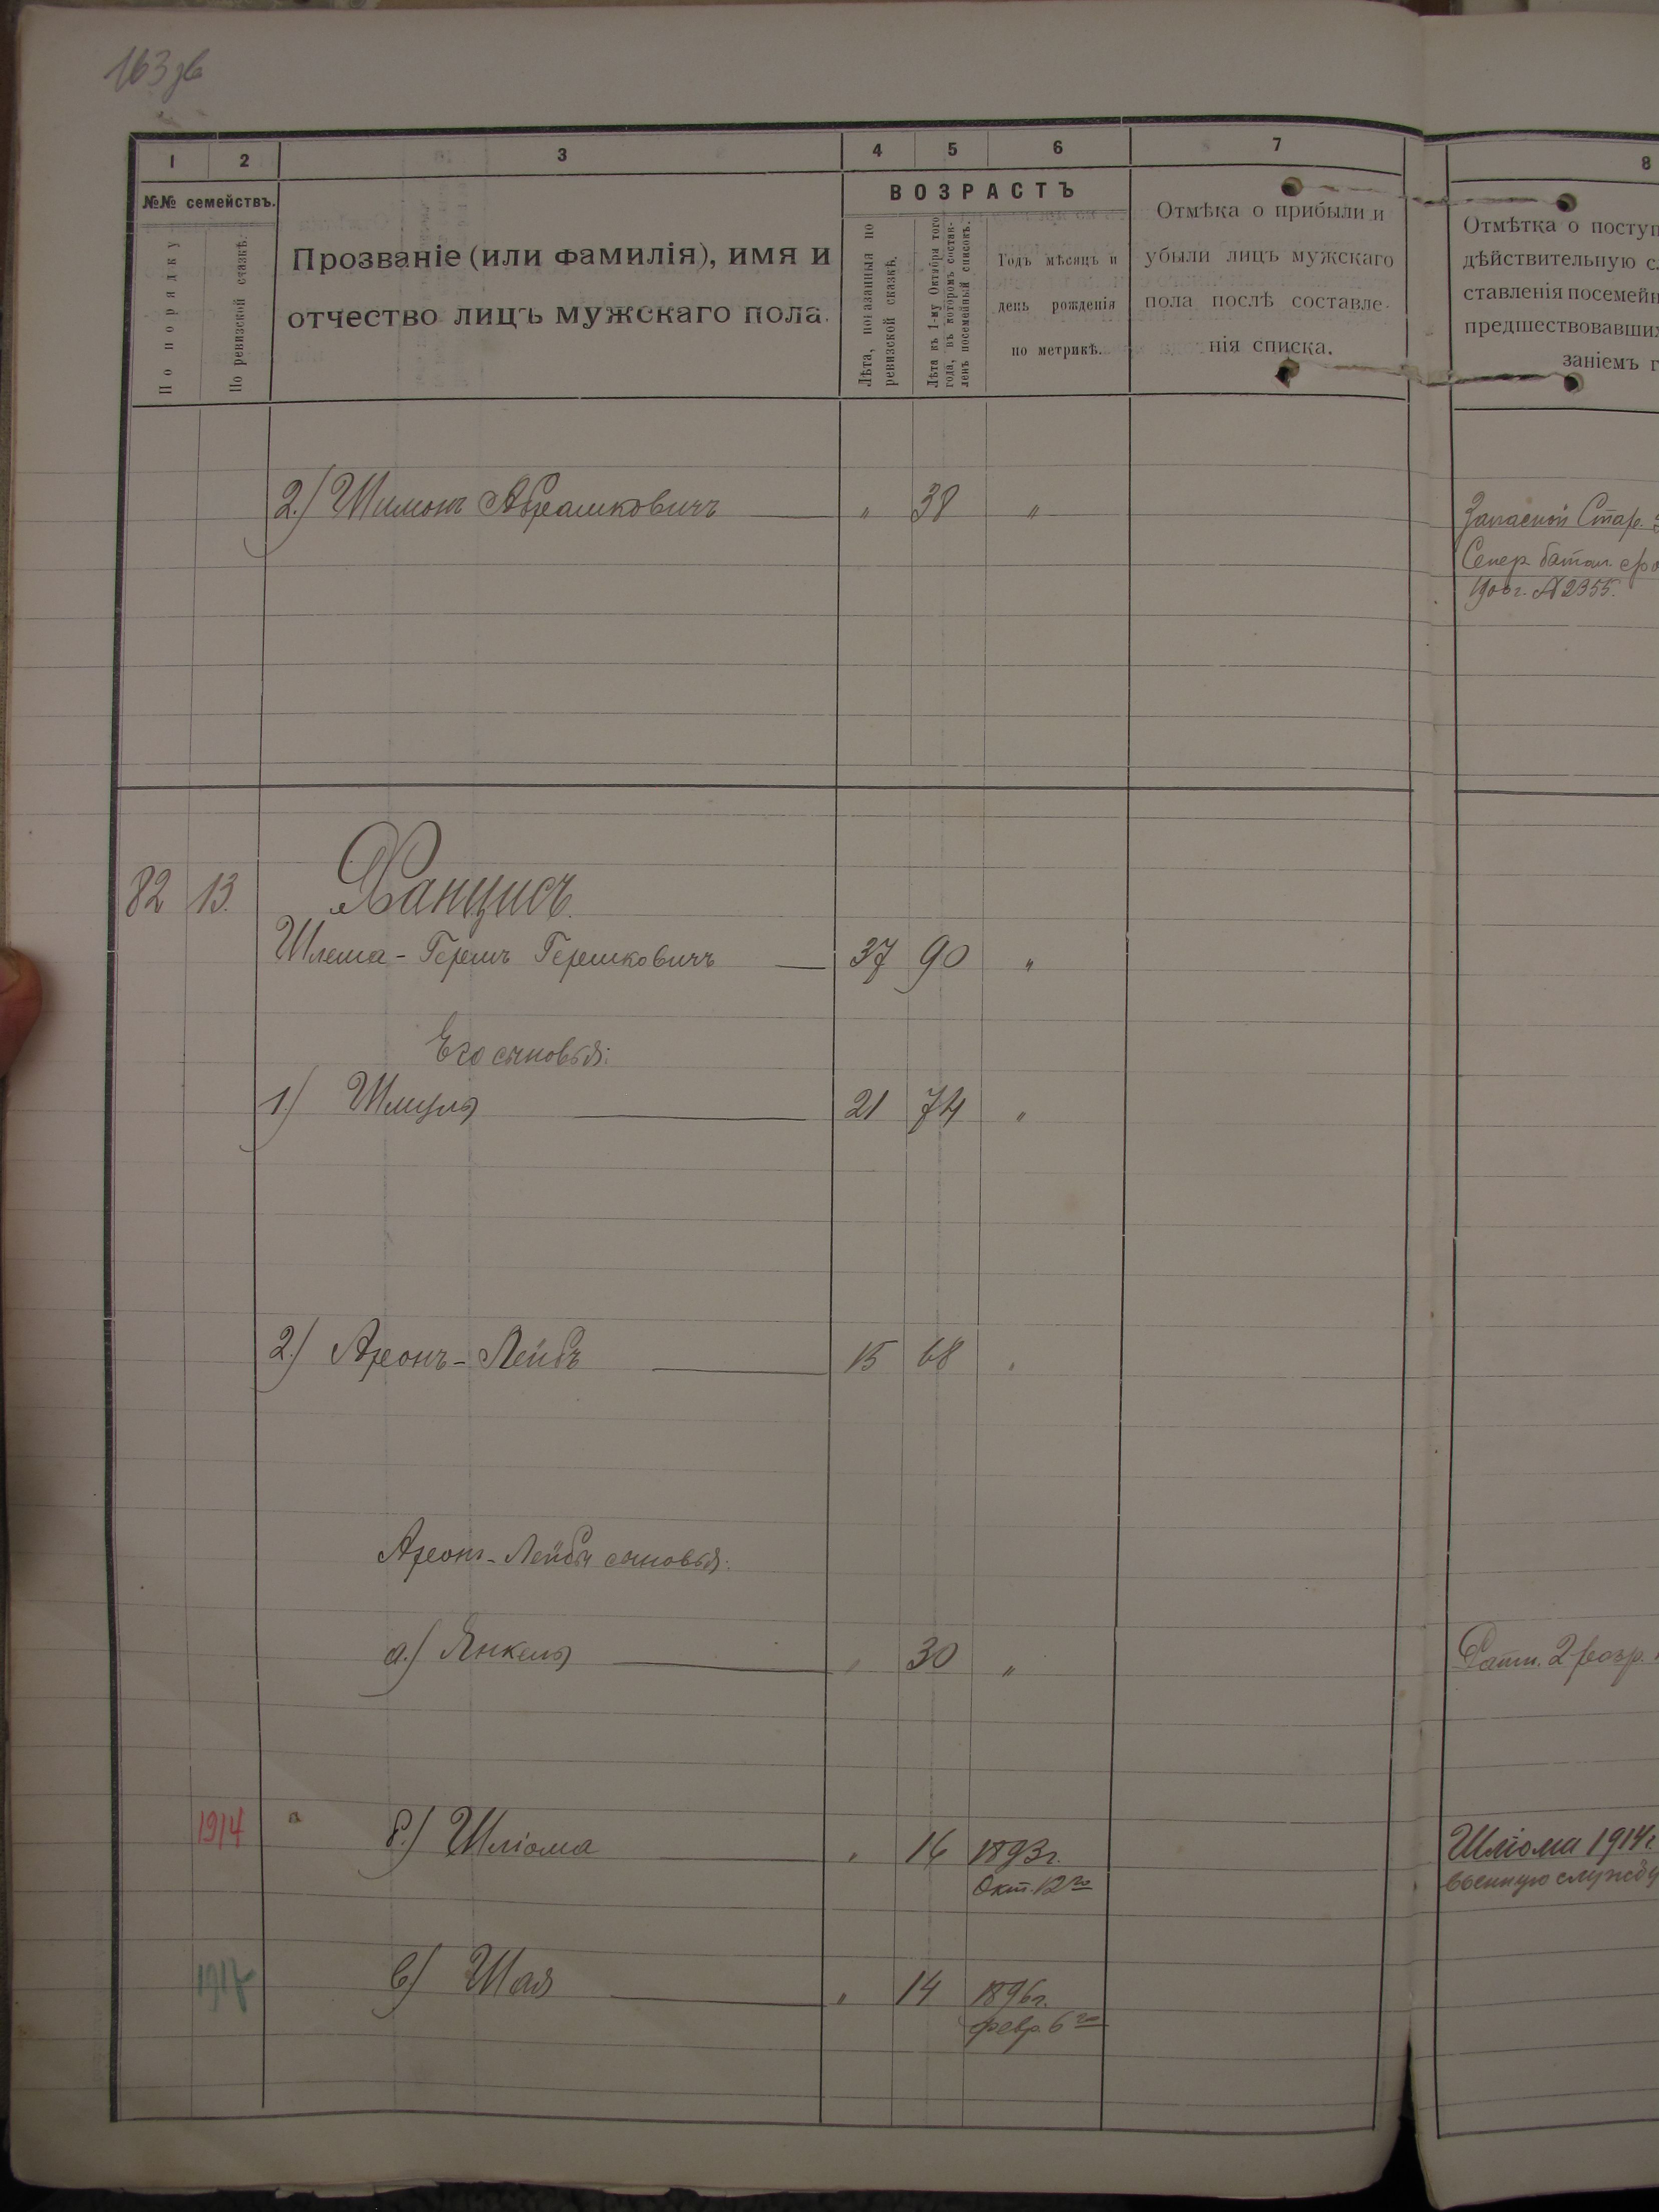 163 зв
1 2 3 4 5 6 7 8
№№ семействъ.
По порядку
По ревизской сказкѣ.
Прозваніе (или фамилія), имя и
отчество лицъ мужскаго пола.
ВОЗРАСТЪ
Лѣта, показанныя по
ревизской сказкѣ.
Лѣта къ 1-му Октября того
года, въ которомъ состав-
ленъ посемейный списокъ.
Годъ мѣсяцъ и
день рожденія
по метрикѣ.
Отмѣка о прибыли и
убыли лицъ мужскаго
пола послѣ составле-
нія списка.
Отмѣтка о поступ
дѣйствительную сл
ставленія посемейн
предшествовавших
заніемъ г
2.) Шимонъ Абрамковичъ — " 38 "
Запасной Стар.
Сапер. батал.
1900 г. № 2355.
82 13. Ханцисъ
Шлема - Гершъ Гершковичъ — 37 90 "
Его сыновья:
1.) Шмуль — 21 74 "
2.) Аронъ - Лейбъ — 15 68 "
Аронъ - Лейбы сыновья:
а.) Янкель — " 30 "
Ратн. 2 разр.
1914 а б.) Шліома — " 16 1893 г.
Окт. 12го
Шліома 1914 г
военную службу
1917 в) Шая — " 14 1896 г.
февр. 6го